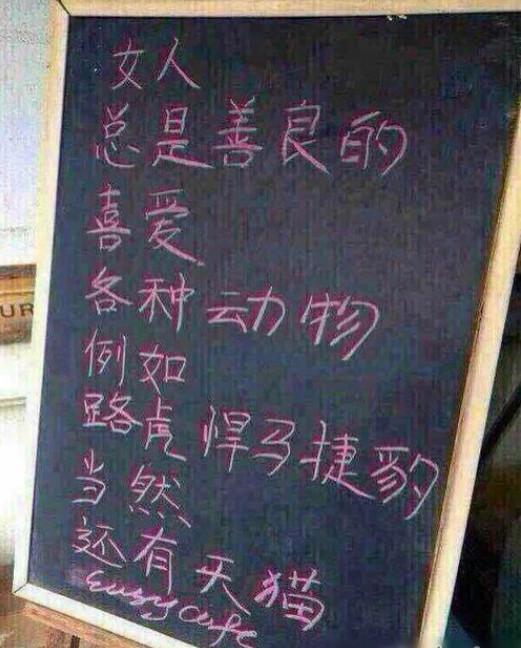 女人
总是善良的
喜爱
各种动物
例如
路虎悍马捷豹
当然
还有天猫
UR